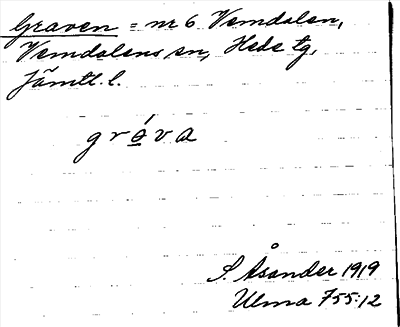 Graven = nr 6 Vemdalen,
Vemdalens sn, Hede tg,
Jämtl. l.
gráva
S. Åsander 1919
Ulma 755:12